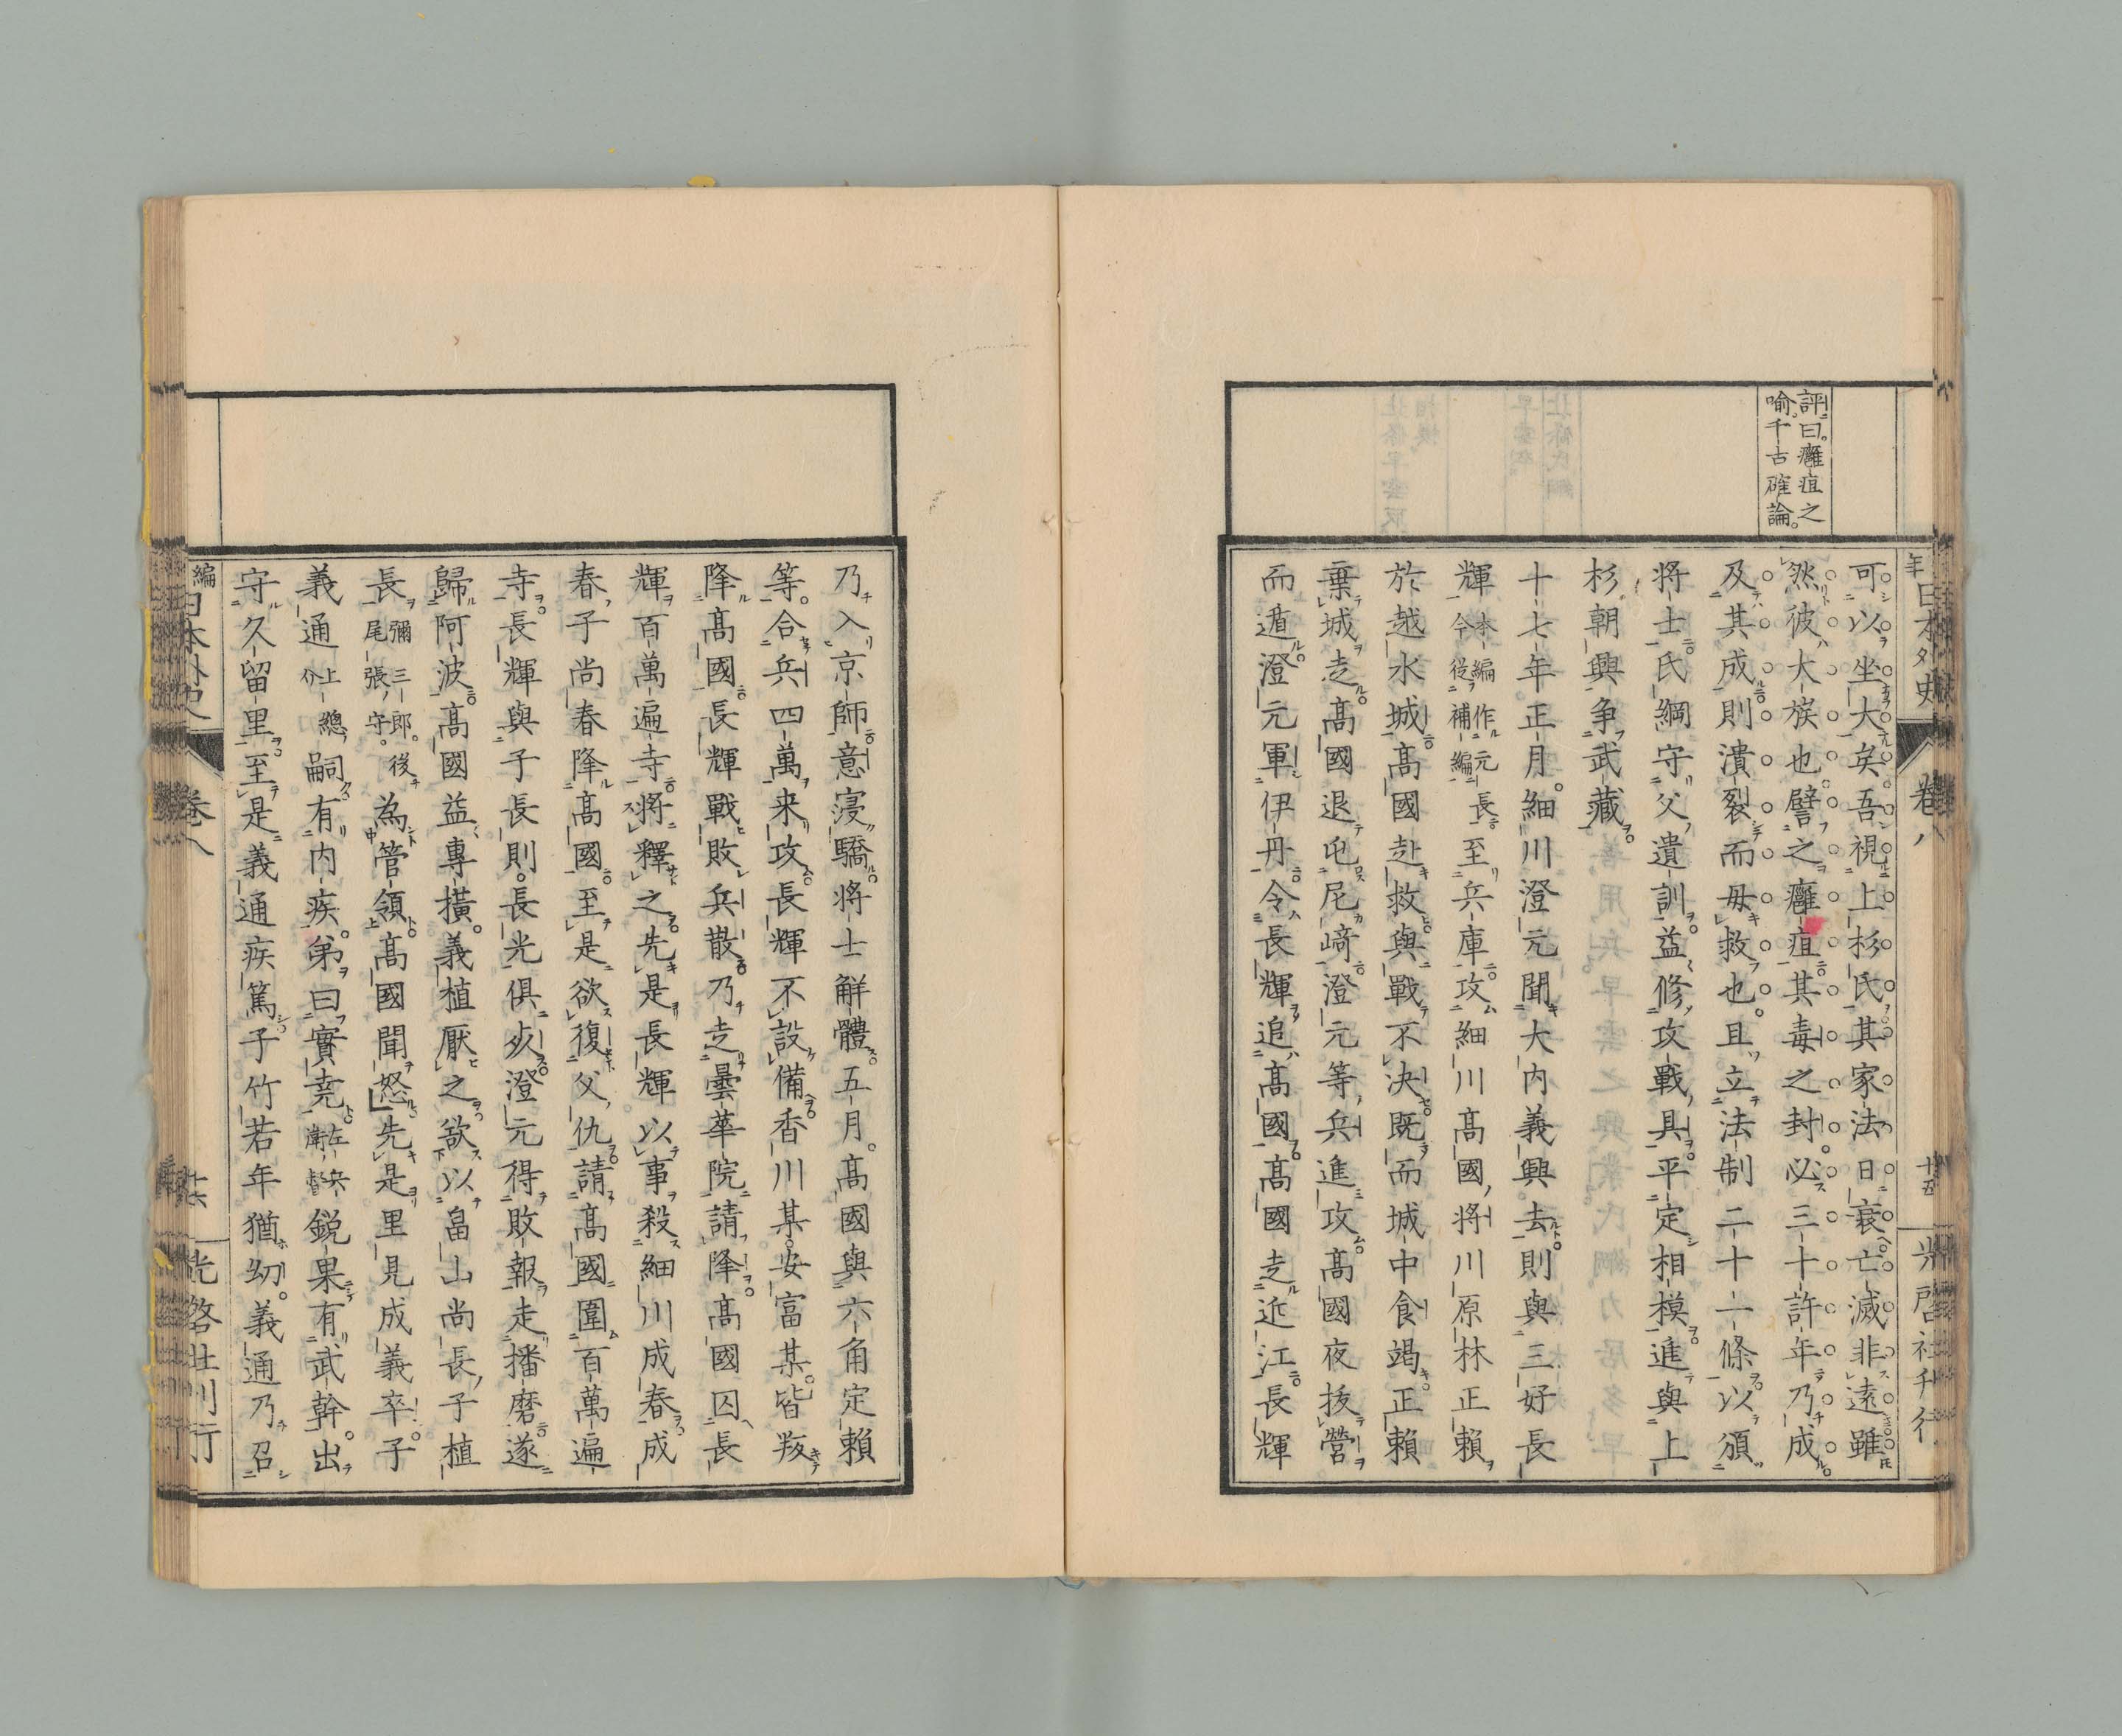 評曰癰疽之
喩千古確論
可以坐大矣吾視上杉氏其家法日衰亡滅非遠雖
然彼大族也譬之癰疽其毒之封必三十許年乃成
及其成則潰裂而毋救也且立法制二十一條以頒
将士氏綱守父遺訓益修攻戰具平定相模進與上
杉朝興争武藏
十七年正月細川澄元聞大内義興去則與三好長
輝本編作元長今從補編至兵庫攻細川髙國將川原林正賴
於越水城髙國赴救與戰不决既而城中食竭正賴
棄城走髙國退屯尼﨑澄元等兵進攻髙國夜拔營
而遁澄元軍伊丹令長輝追髙國髙國走近江長輝
年日本外史
卷八
十五
光啓社刋行
乃入京師意寖驕將士解體五月髙國與六角定賴
等合兵四萬来攻長輝不設備香川某安富某皆叛
降髙國長輝戰敗兵散乃走曇華院請降髙國囚長
輝百萬遍寺將釋之先是長輝以事殺細川成春成
春子尚春降髙國至是欲復父仇請髙國圍百萬遍
寺長輝與子長則長光俱死澄元得敗報走播磨遂
歸阿波髙國益專橫義植厭之欲以畠山尚長子植
長彌三郎後尾張守為管領髙國聞怒先是里見成義卒子
義通上總介嗣有内疾弟曰實堯左央鋭果有武幹出
守久留里至是義通疾篤子竹若年猶幼義通乃召
編日本外史
卷八
十六
光啓社刋行